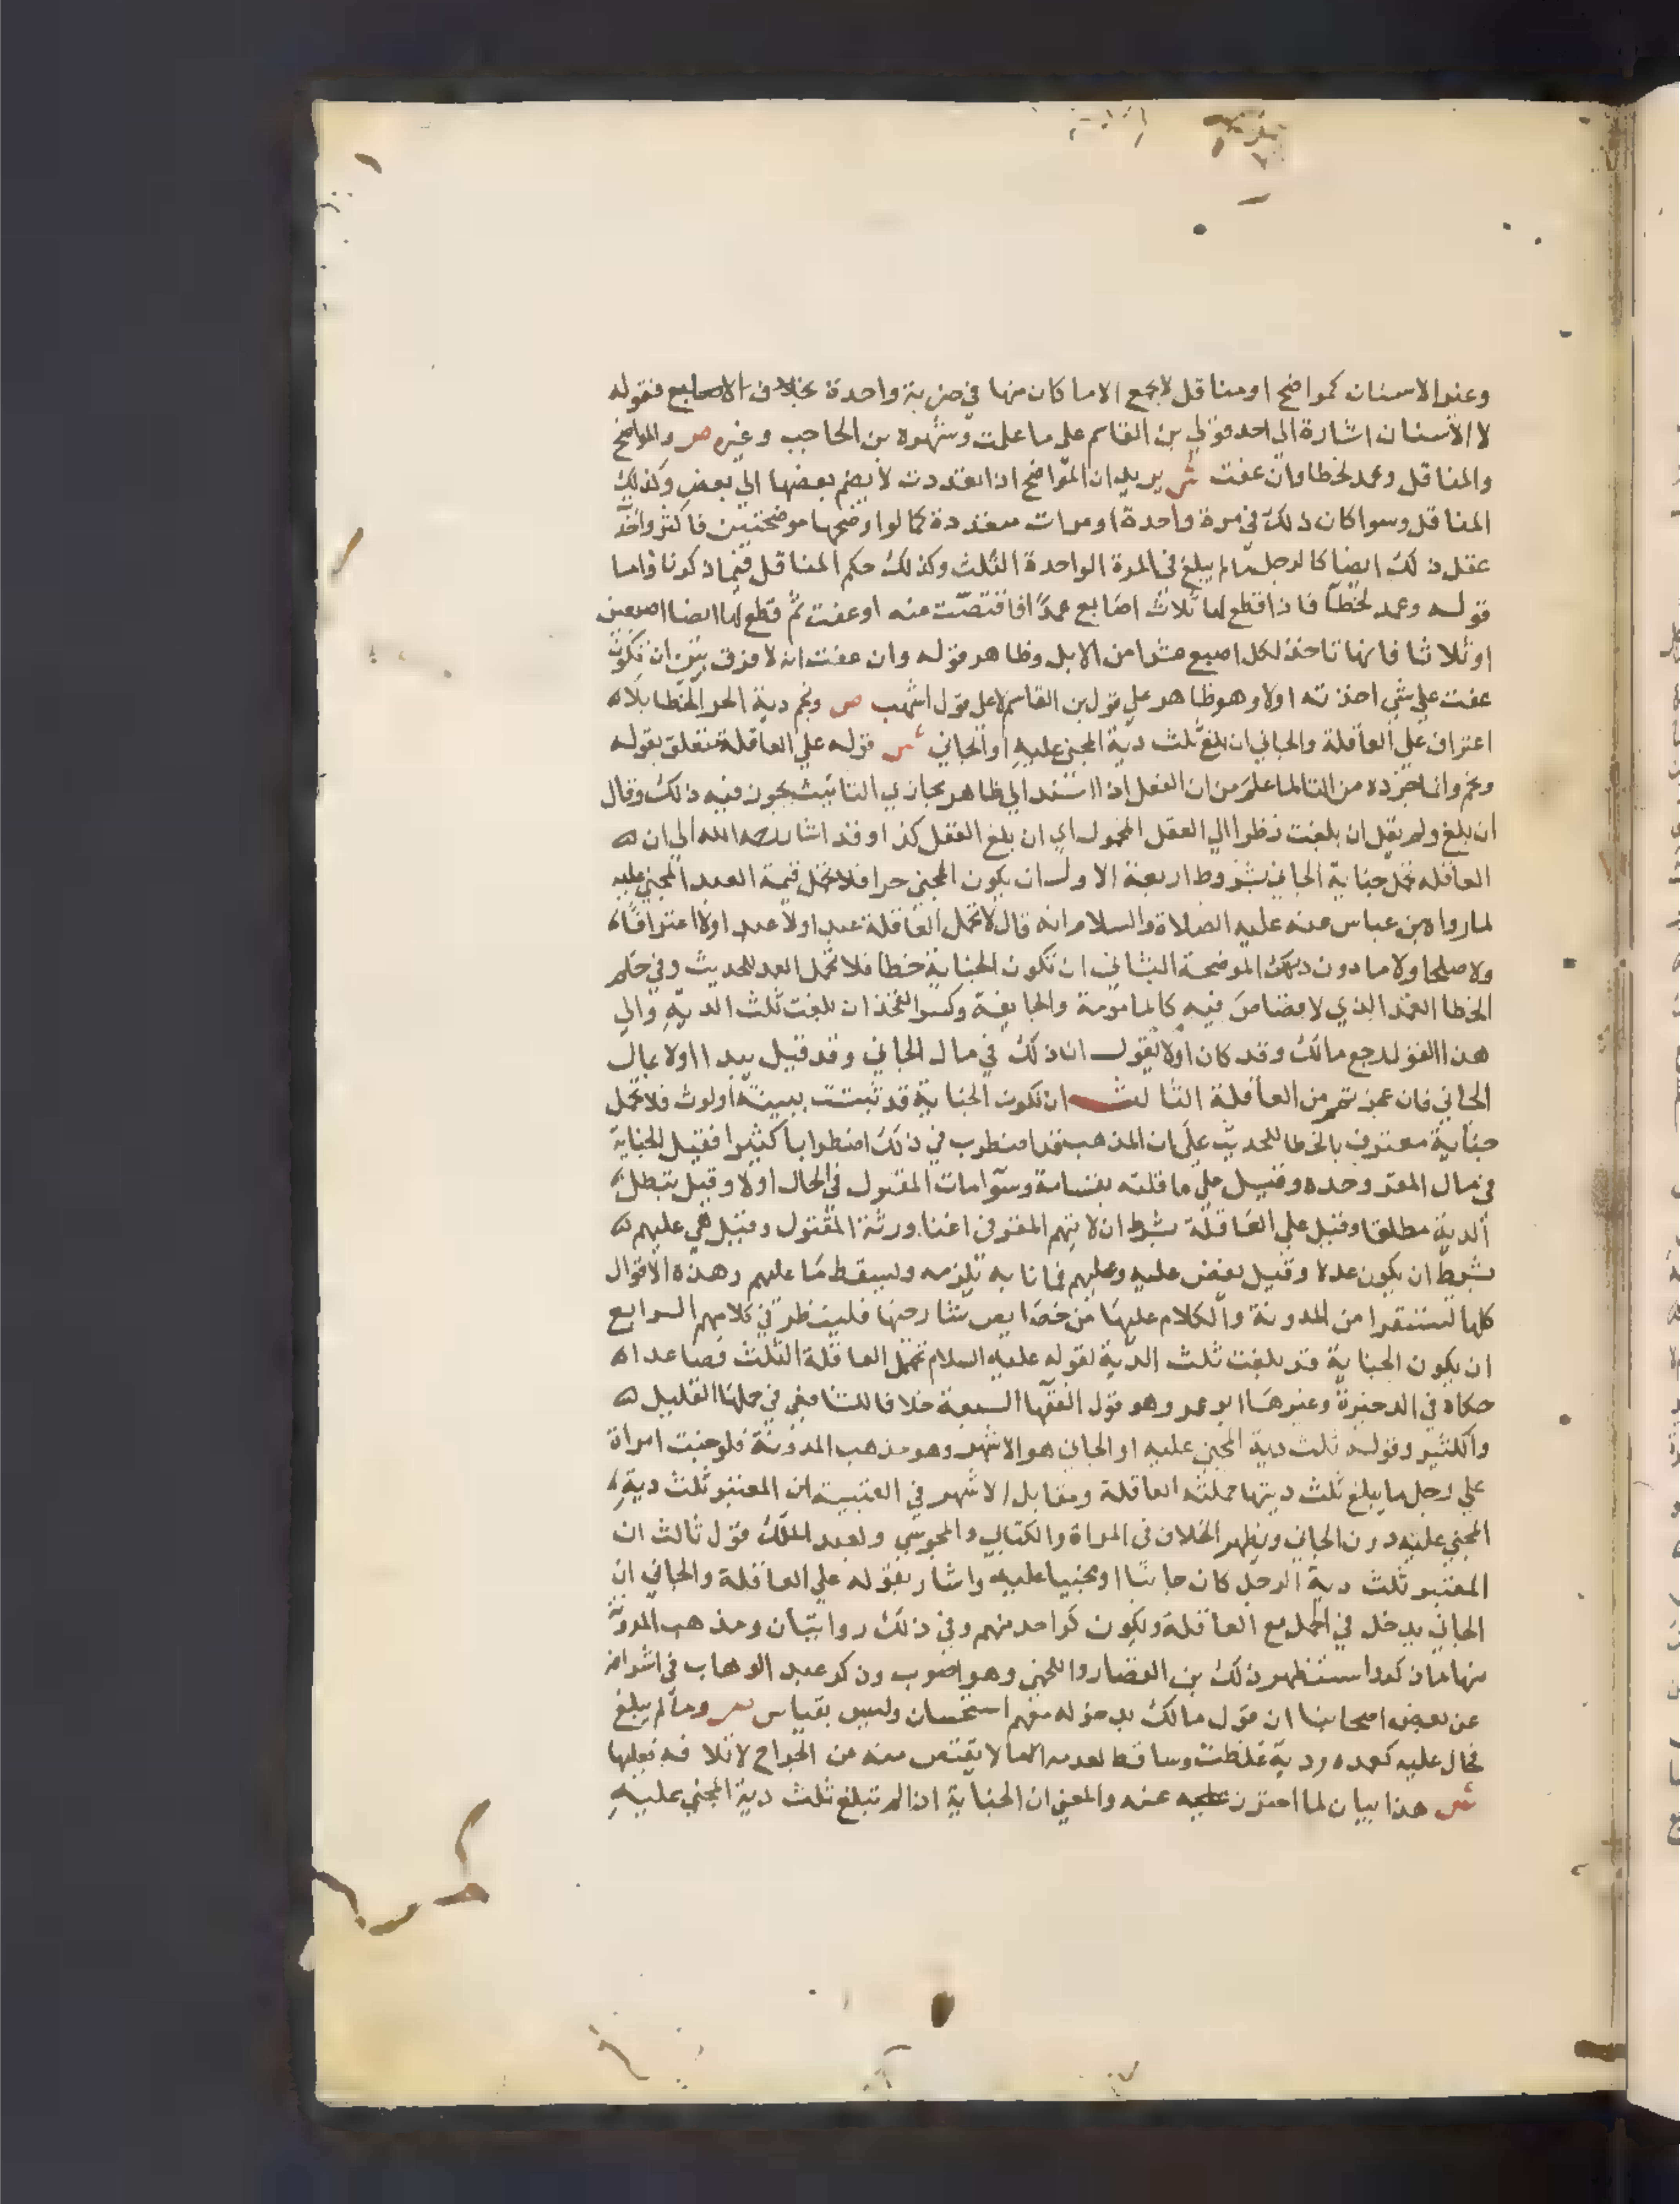 وعند الاسنان كمواضح او مناقل لا يجمع الا ما كان منها في ضربة واحدة بخلاف الاصابع فقوله
لا الاسنان اشارة الى احد قولي بن القاسم على ما علمت وشهره بن الحاجب وغيره ص والمواضح
والمناقل وعمد لخطا وان عفت ش يريد ان المواضح اذا تعددت لا يضم بعضها الي بعض وكذلك
المناقل وسوا كان ذلك في مرة واحدة او مرات متعددة كما لو اوضحها موضحتين فاكثر واخذ
عقل ذلك ايضا كالرجل ما لم يبلغ في المرة الواحدة الثلث وكذلك حكم المناقل فيما ذكرنا واما
قوله وعمد لخطا فاذا قطع لها ثلاث اصابع عمدا فاقتصت منه او عفت ثم قطع لها ايضا اصبعين
او ثلاثا فانها تاخذ لكل اصبع عشرا من الابل وظاهر قوله وان عفت انه لا فرق بين ان تكون
عفت علي شي اخذته اولا وهو ظاهر علي قول بن القاسم لا على قول اشهب ص ونجم دية الحر الخطا بلا
اعتراف علي العاقلة والجاني ان بلغ ثلث دية المجني عليه او الجاني ش قوله علي العاقلة متعلق بقوله
ونجم وانما جرده من التا لما علم من ان الفعل اذا اسند الي ظاهر مجازي التانيث يجوز فيه ذلك وقال
ان بلغ ولم يقل ان بلغت نظرا الي العقل المحمول اي ان بلغ العقل كذا وقد اشار رحمه الله الي ان
العاقله تحمل جناية الجاني بشروط اربعة الاول ان يكون المجني حرا فلا تحمل قيمة العبد المجني عليه
لما رواه بن عباس عنه عليه الصلاة والسلام انه قال لا تحمل العاقلة عبدا ولا عمدا ولا اعترافا
ولا صلحا ولا ما دون الموضحة الثاني ان تكون الجناية خطا فلا تحمل العمد للحديث وفي حكم
الخطا العمد الذي لا قصاص فيه كالمامومة والجايفة وكسر الفخذ ان بلغت ثلث الدية والي
هذا القول رجع مالك وقد كان اولا يقول ان ذلك في مال الجاني وقد قيل يبدا اولا بمال
الجاني فان عجز تمم من العاقلة الثالث ان تكون الجناية قد ثبتت ببينة او لوث فلا تحمل
جناية معترف بالخطا للحديث علي ان المذهب قد اضطرب في ذلك اضطرابا كثيرا فقيل الجناية
في مال المقر وحده وقيل علي عاقلته بقسامة وسوا مات المقتول في الحال او لا وقيل تبطل
الدية مطلقا وقيل علي العاقلة بشرط ان لا يتهم المقر في اغنا ورثة المقتول وقيل هي عليهم
بشرط ان يكون عدلا وقيل تفض عليه وعليهم فما نابه تلزمه وليسقط ما عليهم وهذه الاقوال
كلها لتستقرا من المدونة والكلام عليها من خصايص شارحها فلينظر في كلامهم الرابع
ان يكون الجناية قد بلغت ثلث الدية لقوله عليه السلام تحمل العاقلة الثلث فصاعدا
حكاه في الدخيرة وغيرها ابو عمر وهو قول الفقها السبعة خلافا للشافعي في حملها القليل
والكثير وقوله ثلث دية المجني عليه او الجاني هو الاشهر وهو مذهب المدونة فلو جنت امراة
علي رجل ما يبلغ ثلث ديتها حملته العاقلة ومقابل الاشهر في العتبية ان المعتبر ثلث دية
المجني عليه دون الجاني ويظهر الخلاف في المراة والكتابي والمجوسي ولعبد الملك قول ثالث ان
المعتبر ثلث دية الرجل كان جانيا او مجنيا عليه واشار بقوله علي العاقلة والجاني ان
الجاني يدخل في الحمل مع العاقلة ويكون كواحد منهم وفي ذلك روايتان ومذهب المدونة
منها ما ذكر واستظهر ذلك بن القصار واللخمي وهو اصوب وذكر عبد الوهاب في اشرافه
عن بعض اصحابنا ان قول مالك بدخوله معهم استحسان وليس بقياس ص وما لم يبلغ
فحال عليه كعمد ودية غلظت وساقط لعدمه الا ما لا يقتص منه من الجراح لاتلافه فعليها
ش هذا بيان لما احترز عنه والمعني ان الجناية اذا لم تبلغ ثلث دية المجني عليه